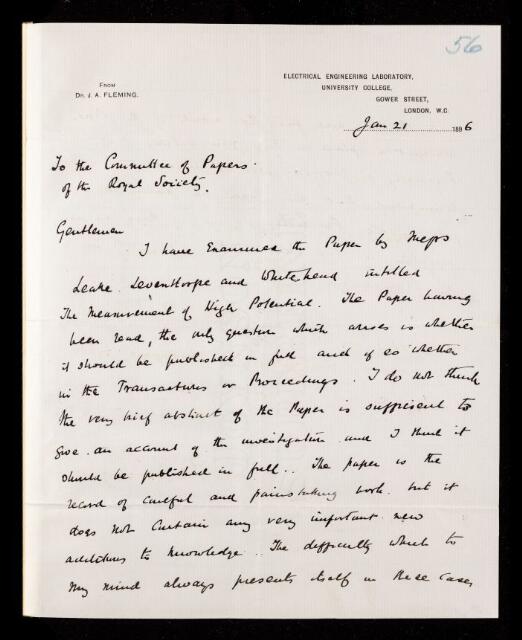 56
From
Dr. J. A. FLEMING.
ELECTRICAL ENGINEERING LABORATORY,
UNIVERSITY COLLEGE,
GOWER STREET,
LONDON, W.C.
Jan 21 1896
To the Committee of Papers
of the Royal Society.
Gentlemen
I have Examined the Paper by Messrs
Leake, Leventhorpe and Whitehead intitled
The Measurement of High Potential. The Paper having
been read, the only question which arises is whether
it should be published in full and if so whether
in the Transactions or Proceedings. I do not think
the very brief abstract of the Paper is sufficient to
give an account of the investigation and I think it
should be published in full.. The paper is the
record of careful and painstaking work but it
does not contain any very important new
additions to knowledge. The difficulty which to
my mind always presents itself in these cases